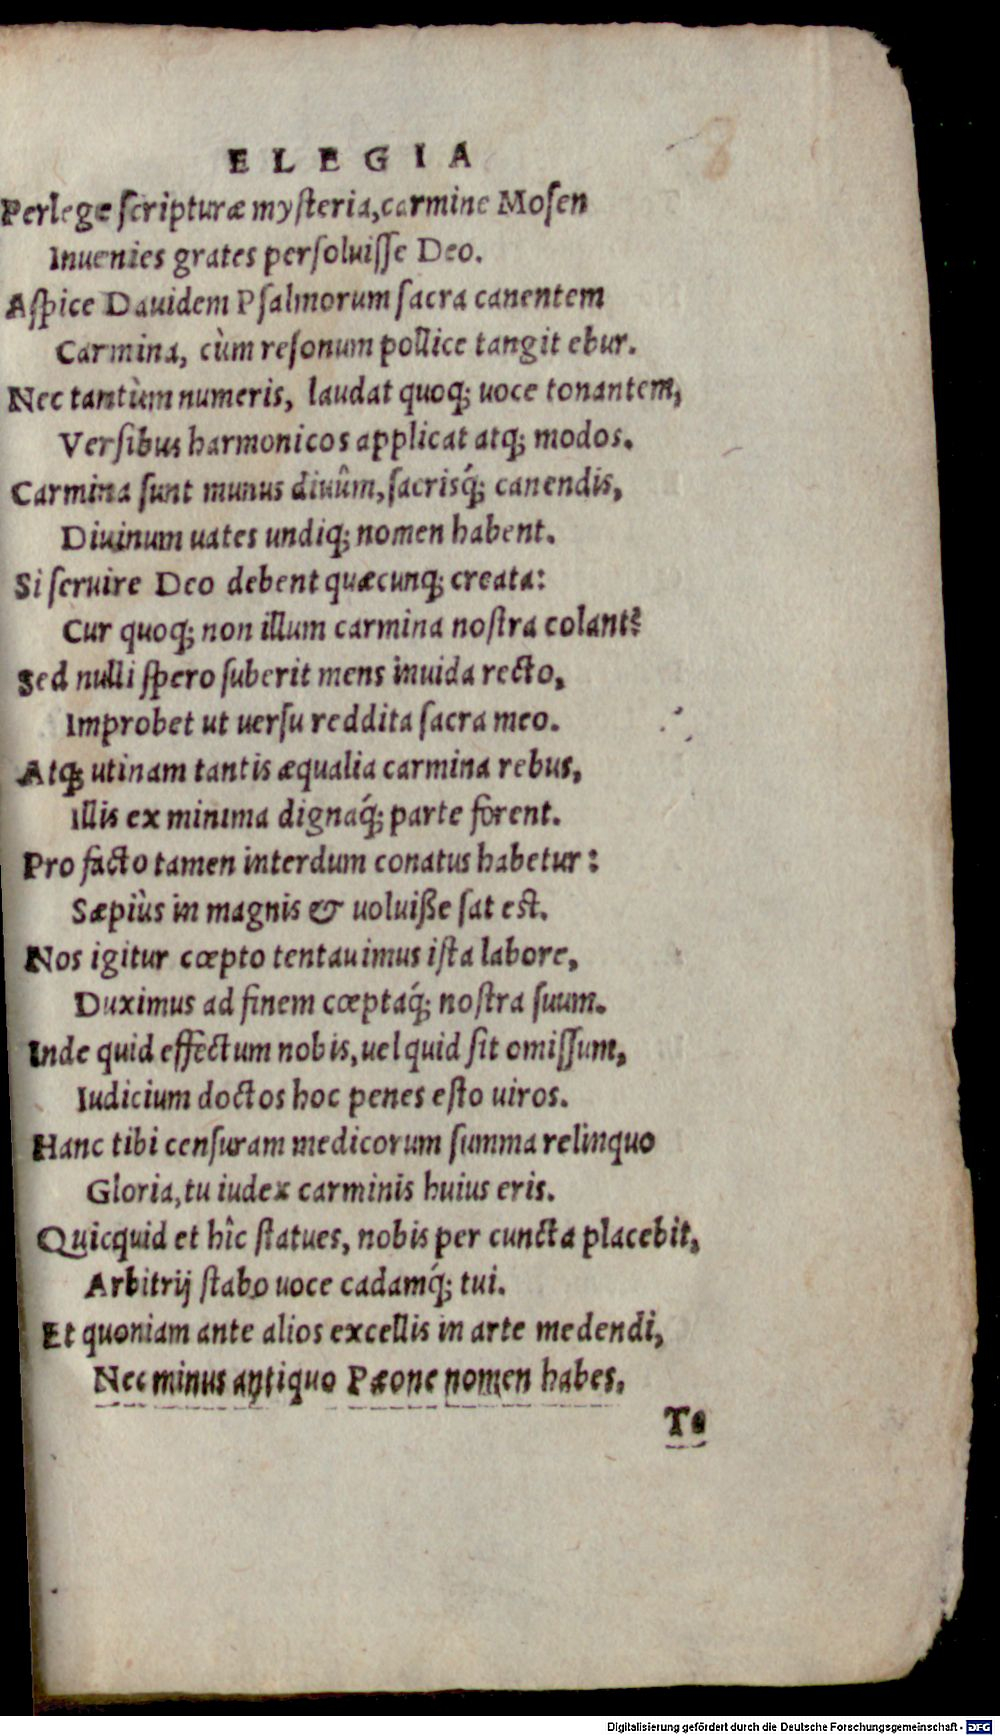 ELEGIA
8
Perlege ſcripturæ myſteria, carmine Moſen
Inuenies grates perſoluiſſe Deo.
Aſpice Dauidem Pſalmorum ſacra canentem
Carmina, cùm reſonum pollice tangit ebur.
Nec tantùm numeris, laudat quoq; uoce tonantem,
Verſibus harmonicos applicat atq; modos.
Carmina ſunt munus diuûm, ſacrisq́; canendis,
Diuinum uates undiq; nomen habent.
Si ſeruire Deo debent quæcunq; creata:
Cur quoq; non illum carmina noſtra colant?
Sed nulli ſpero ſuberit mens inuida recto,
Improbet ut uerſu reddita ſacra meo.
Atq; utinam tantis æqualia carmina rebus,
Illis ex minima dignaq́; parte forent.
Pro facto tamen interdum conatus habetur:
Sæpiùs in magnis & uoluiße ſat eſt.
Nos igitur cœpto tentauimus iſta labore,
Duximus ad finem cœptaq́; noſtra ſuum.
Inde quid effectum nobis, uel quid ſit omiſſum,
Iudicium doctos hoc penes eſto uiros.
Hanc tibi cenſuram medicorum ſumma relinquo
Gloria, tu iudex carminis huius eris.
Quicquid et hîc ſtatues, nobis per cuncta placebit,
Arbitrij ſtabo uoce cadamq́; tui.
Et quoniam ante alios excellis in arte medendi,
Nec minus antiquo Pæone nomen habes.
Te
Digitalisierung gefördert durch die Deutsche Forschungsgemeinschaft - DFG